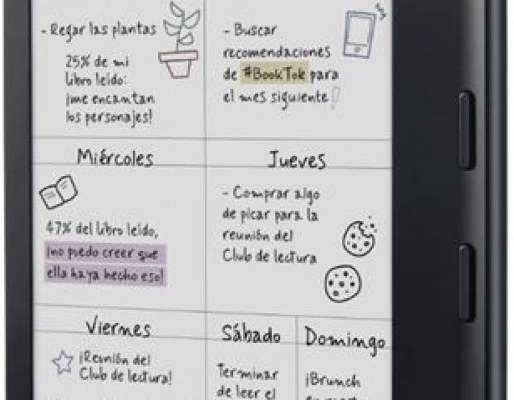 - Regar las plantas
25% de mi
libro leído:
¡me encantan
los personajes!
- Buscar
recomendaciones
de #BookTok para
el mes siguiente!
Miércoles
47% del libro leído,
¡no puedo creer que
ella haya hecho eso!
Jueves
- Comprar algo
de picar para la
reunión del
Club de lectura
Viernes
¡Reunión del
Club de lectura!
Sábado
Terminar
de leer el
Domingo
¡Brunch